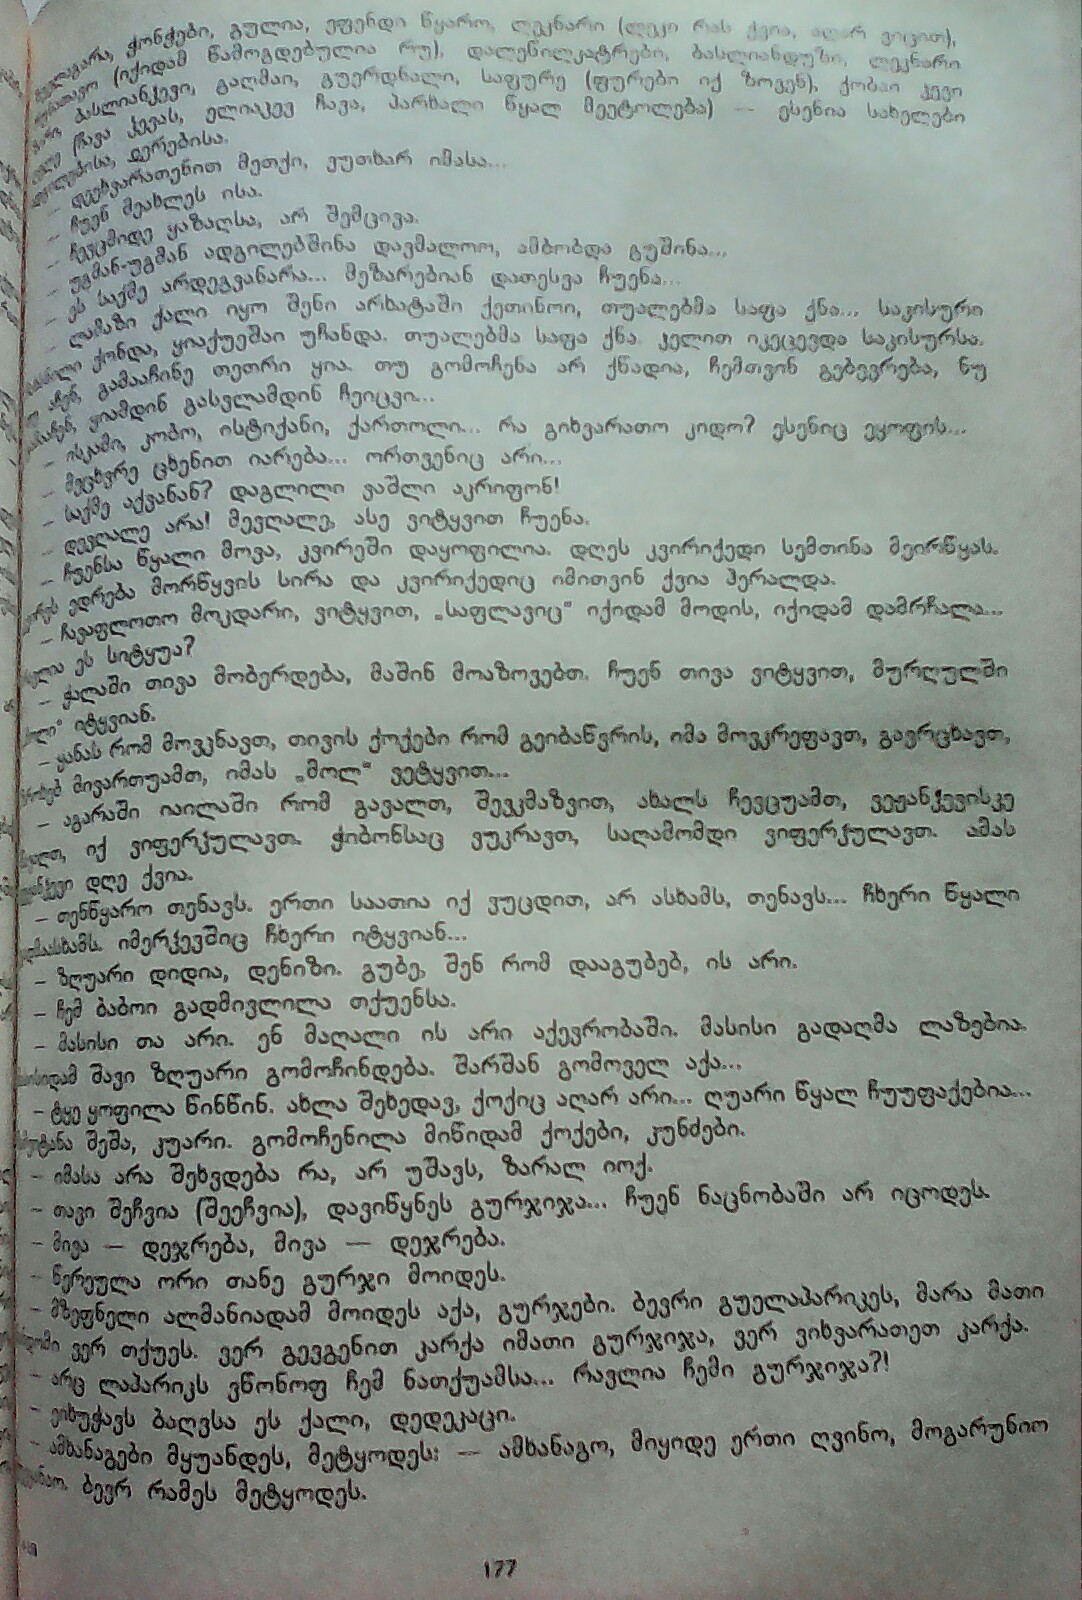 ჭონჭები, გულია, ეფენდი წყარო, ლეკნარი (ლეკი რას ქვია, აღარ ვიცით),
(იქიდამ წამოგდებულია რუ), დალეწილკატრები, ბასლიანდუზი, ლეკნარი
ბასლიანჴევი, გაღმაი, გუერდნალი, საფურე (ფურები იქ ზოვენ), ქობაი ჴევი
(ჩავა ჴევას, ელიაჴევ ჩავა, პარხალი წყალ მეეტოლება) — ესენია სახელები
სერებისა.
– დეეხვარათენით მეთქი, ვუთხარ იმასა...
– ჩუენ მეახლეს ისა.
– ჩევცმიდე ყაზაღსა, არ შემცივა.
– უგმან-უგმან ადგილებშინა დავმალოო, ამბობდა გუშინა...
– ეს საქმე არდეგვანარა... მეზარებიან დათესვა ჩუენა...
– ლამაზი ქალი იყო შენი არხატაში ქეთინოი, თუალებმა საფა ქნა... საკისური
ქონდა, ყიაქუეშაი უჩანდა. თუალებმა საფა ქნა. ჴელით იკეცევდა საკისურსა.
გამააჩინე თეთრი ყია. თუ გომოჩენა არ ქნადია, ჩემთვინ გებევრება, ნუ
ყიამდინ გასვლამდინ ჩეიცვი...
– ისკამი, კობო, ისტიქანი, ქართოლი... რა გიხვარათო კიდო? ესენიც ეყოფის...
– მეცხვრე ცხენით იარება... ორთვენიც არი...
– საქმე აქვანან? დაგლილი ვაშლი აკრიფონ!
– დევღალე არა! მევღალე, ასე ვიტყვით ჩუენა.
– ჩუენსა წყალი მოვა, კვირეში დაყოფილია. დღეს კვირიქედი სემთინა მეირწყას.
ედრება მორწყვის სირა და კვირიქედიც იმითვინ ქვია ჰერალდა.
– ჩავაფლოთო მოკდარი, ვიტყვით, „საფლავიც“ იქიდამ მოდის, იქიდამ დამრჩალა...
ეს სიტყუა?
– ჭალაში თივა მობერდება, მაშინ მოაზოვებთ. ჩუენ თივა ვიტყვით, მურღულში
იტყვიან.
– ყანას რომ მოვკნავთ, თივის ქოქები რომ გეიბაწვრის, იმა მოვკრეფავთ, გავრცხავთ,
მივართუამთ, იმას „მოლ“ ვეტყვით...
– აგარაში იაილაში რომ გავალთ, შევკმაზვით, ახალს ჩევცუამთ, ვეჟანჴევისკე
იქ ვიფერჴულავთ. ჭიბონსაც ვუკრავთ, საღამომდი ვიფერჴულავთ. ამას
დღე ქვია.
– თენწყარო თენავს. ერთი საათია იქ ვუცდით, არ ასხამს, თენავს... ჩხერი წყალი
იმერჴევშიც ჩხერი იტყვიან...
– ზღუარი დიდია, დენიზი. გუბე, შენ რომ დააგუბებ, ის არი.
– ჩემ ბაბოი გადმივლილა თქუენსა.
– მასისი თა არი. ენ მაღალი ის არი აქევრობაში. მასისი გადაღმა ლაზებია.
შავი ზღუარი გომოჩინდება. შარშან გომოველ აქა...
– ტყე ყოფილა წინწინ. ახლა შეხედავ, ქოქიც აღარ არი... ღუარი წყალ ჩუუფაქებია...
შეშა, კუარი. გომოჩენილა მიწიდამ ქოქები, კუნძები.
– იმასა არა შეხვდება რა, არ უშავს, ზარალ იოქ.
– თავი შეჩვია (შეეჩვია), დავიწყნეს გურჯიჯა... ჩუენ ნაცნობაში არ იცოდეს.
– მივა — დეჯრება, მივა — დეჯრება.
– წერეულა ორი თანე გურჯი მოიდეს.
– მზეფნელი ალმანიადამ მოიდეს აქა, გურჯები. ბევრი გუელაპარიკეს, მარა მათი
ვერ თქუეს. ვერ გევგენით კარქა იმათი გურჯიჯა, ვერ ვიხვარათეთ კარქა.
– არც ლაპარიკს ვწონოფ ჩემ ნათქუამსა... რავლია ჩემი გურჯიჯა?!
– ეიხუჭავს ბაღვსა ეს ქალი, დედეკაცი.
– ამხანაგები მყუანდეს, მეტყოდეს: — ამხანაგო, მიყიდე ერთი ღვინო, მოგარუნიო
ბევრ რამეს მეტყოდეს.
177